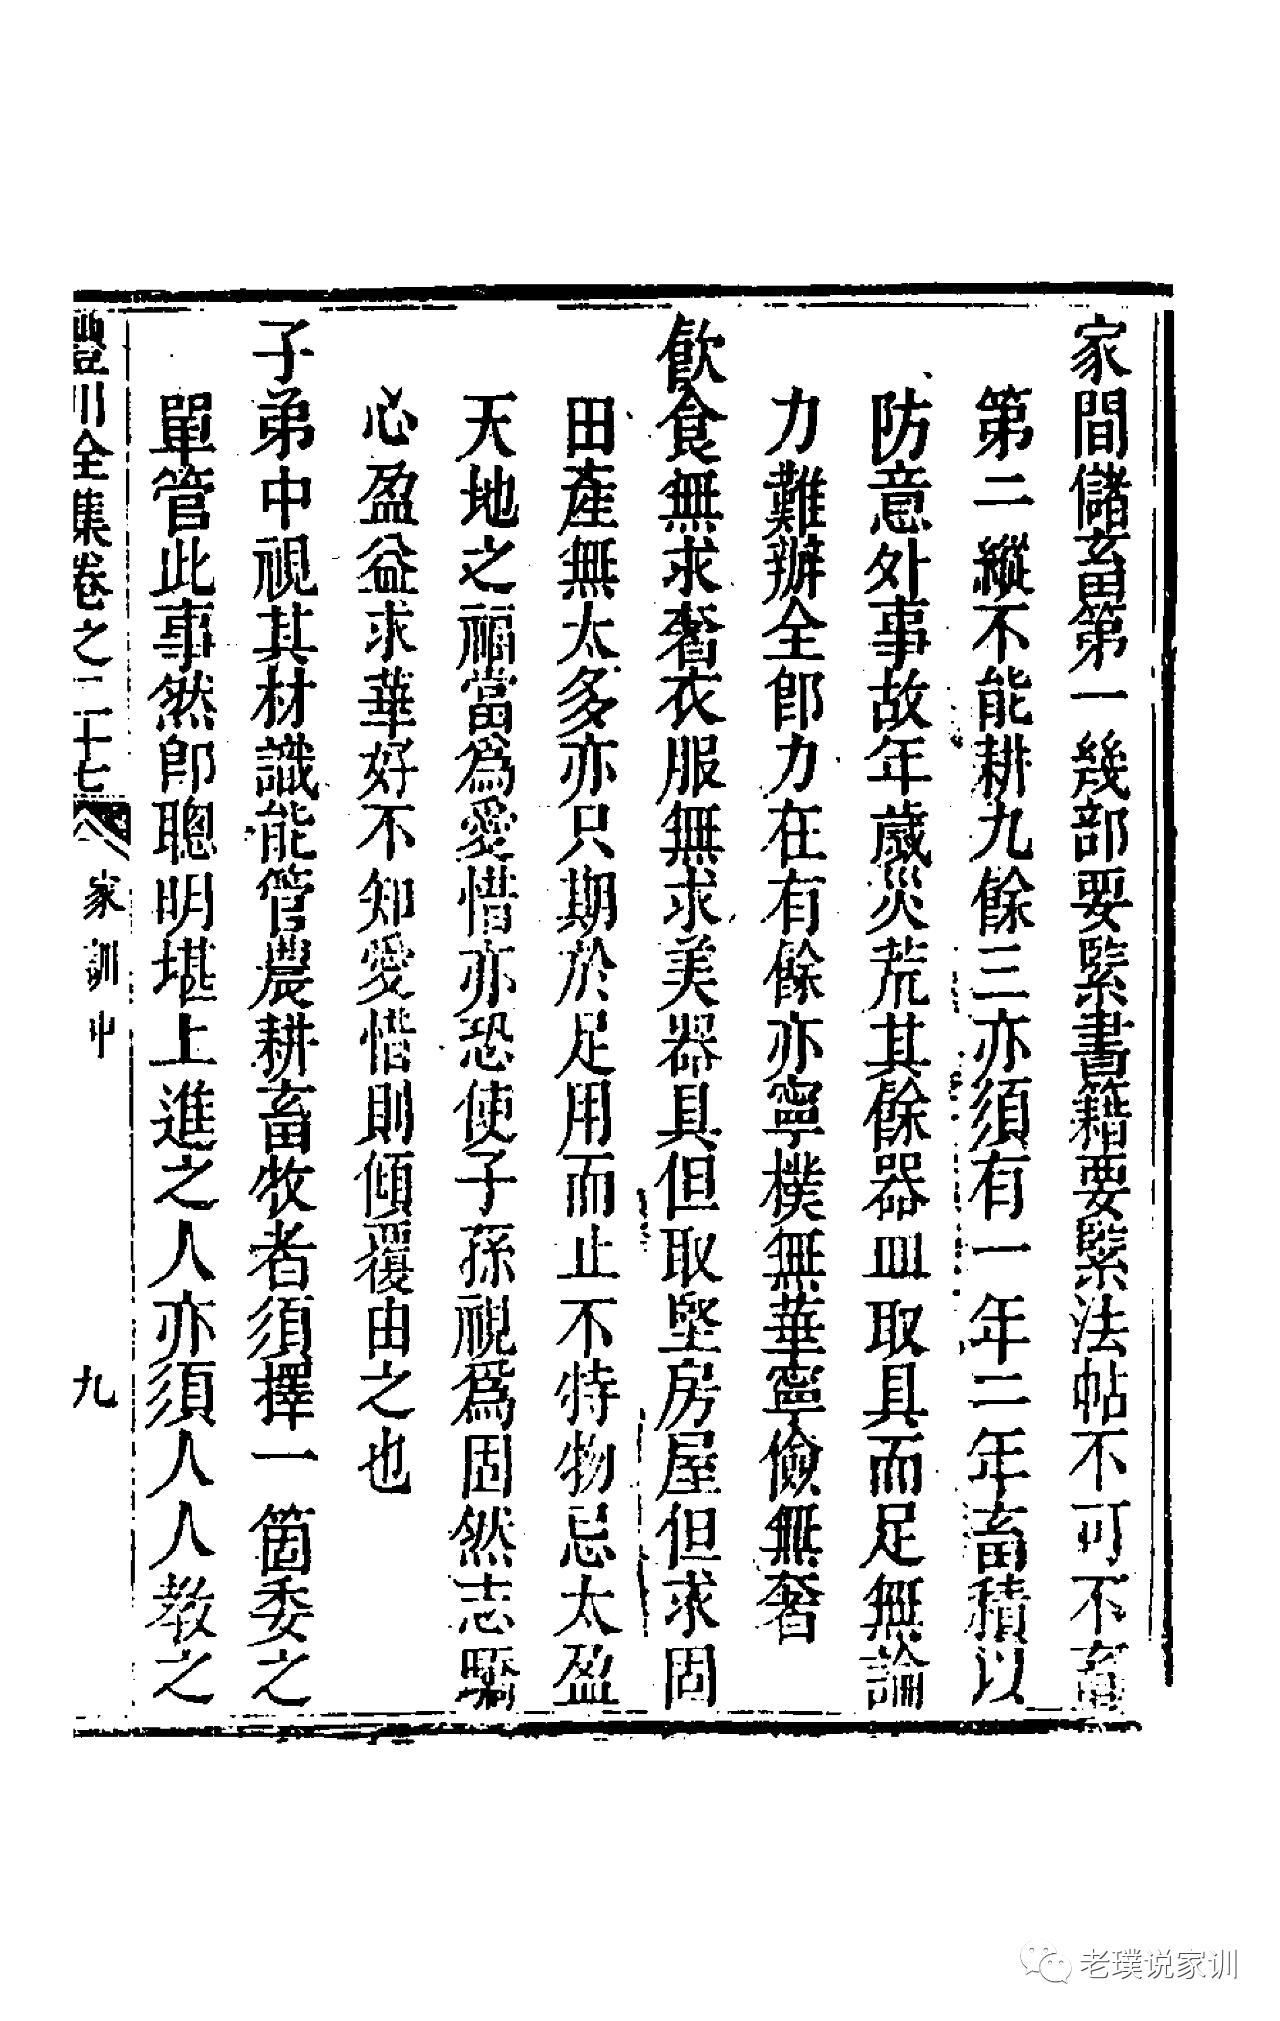 家間儲畜第一幾部要緊書籍要緊法帖不可不畜
第二縱不能耕九餘三亦須有一年二年畜積以
防意外事故年歲災荒其餘器皿取具而足無論
力難辦全卽力在有餘亦寧樸無華寧儉無奢
飲食無求奢衣服無求美器具但取堅房屋但求固
田產無太多亦只期於足用而止不特物忌太盈
天地之福當爲愛惜亦恐使子孫視爲固然志驕
心盈益求華好不知愛惜則傾覆由之也
子弟中視其材識能管農耕畜牧者須擇一箇委之
單管此事然卽聰明堪上進之人亦須人人教之
豐川全集卷之二十七 家訓中 九
老璞说家训